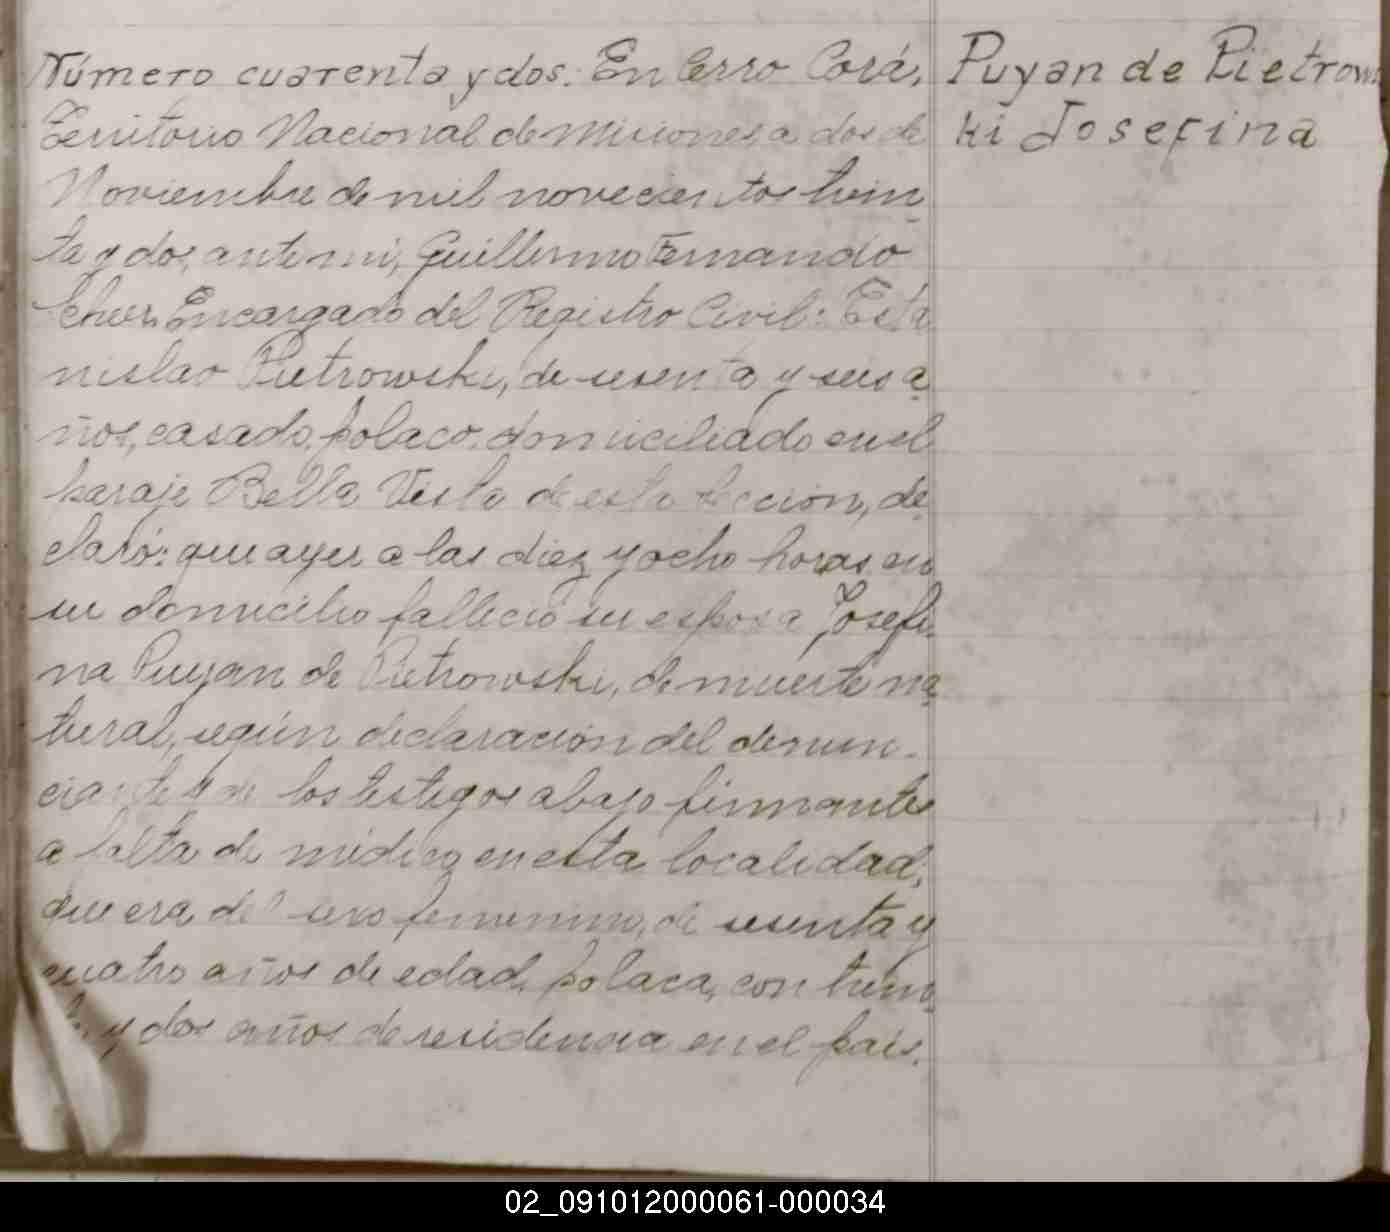 Número cuarenta y dos. En Cerro Corá,
Territorio Nacional de Misiones, a dos de
Noviembre de mil novecientos trein-
ta y dos, ante mi, Guillermo Fernando
Encargado del Registro Civil: Esta
nislao Pietrowski, de sesenta y seis a-
ños, casado, polaco, domiciliado en el
paraje Bella Vista de esta sección, de-
claró: que ayer a las diez y ocho horas en
su domicilio falleció su esposa Josefi-
na Puyan de Pietrowski, de muerte na-
tural, según declaración del denun-
ciante y de los testigos abajo firmantes
a falta de médico en esta localidad,
que era del sexo femenino, de sesenta y
cuatro años de edad, polaca, con trein-
ta y dos años de residencia en el país.
Puyan de Pietrows
ki Josefina
02_091012000061-000034